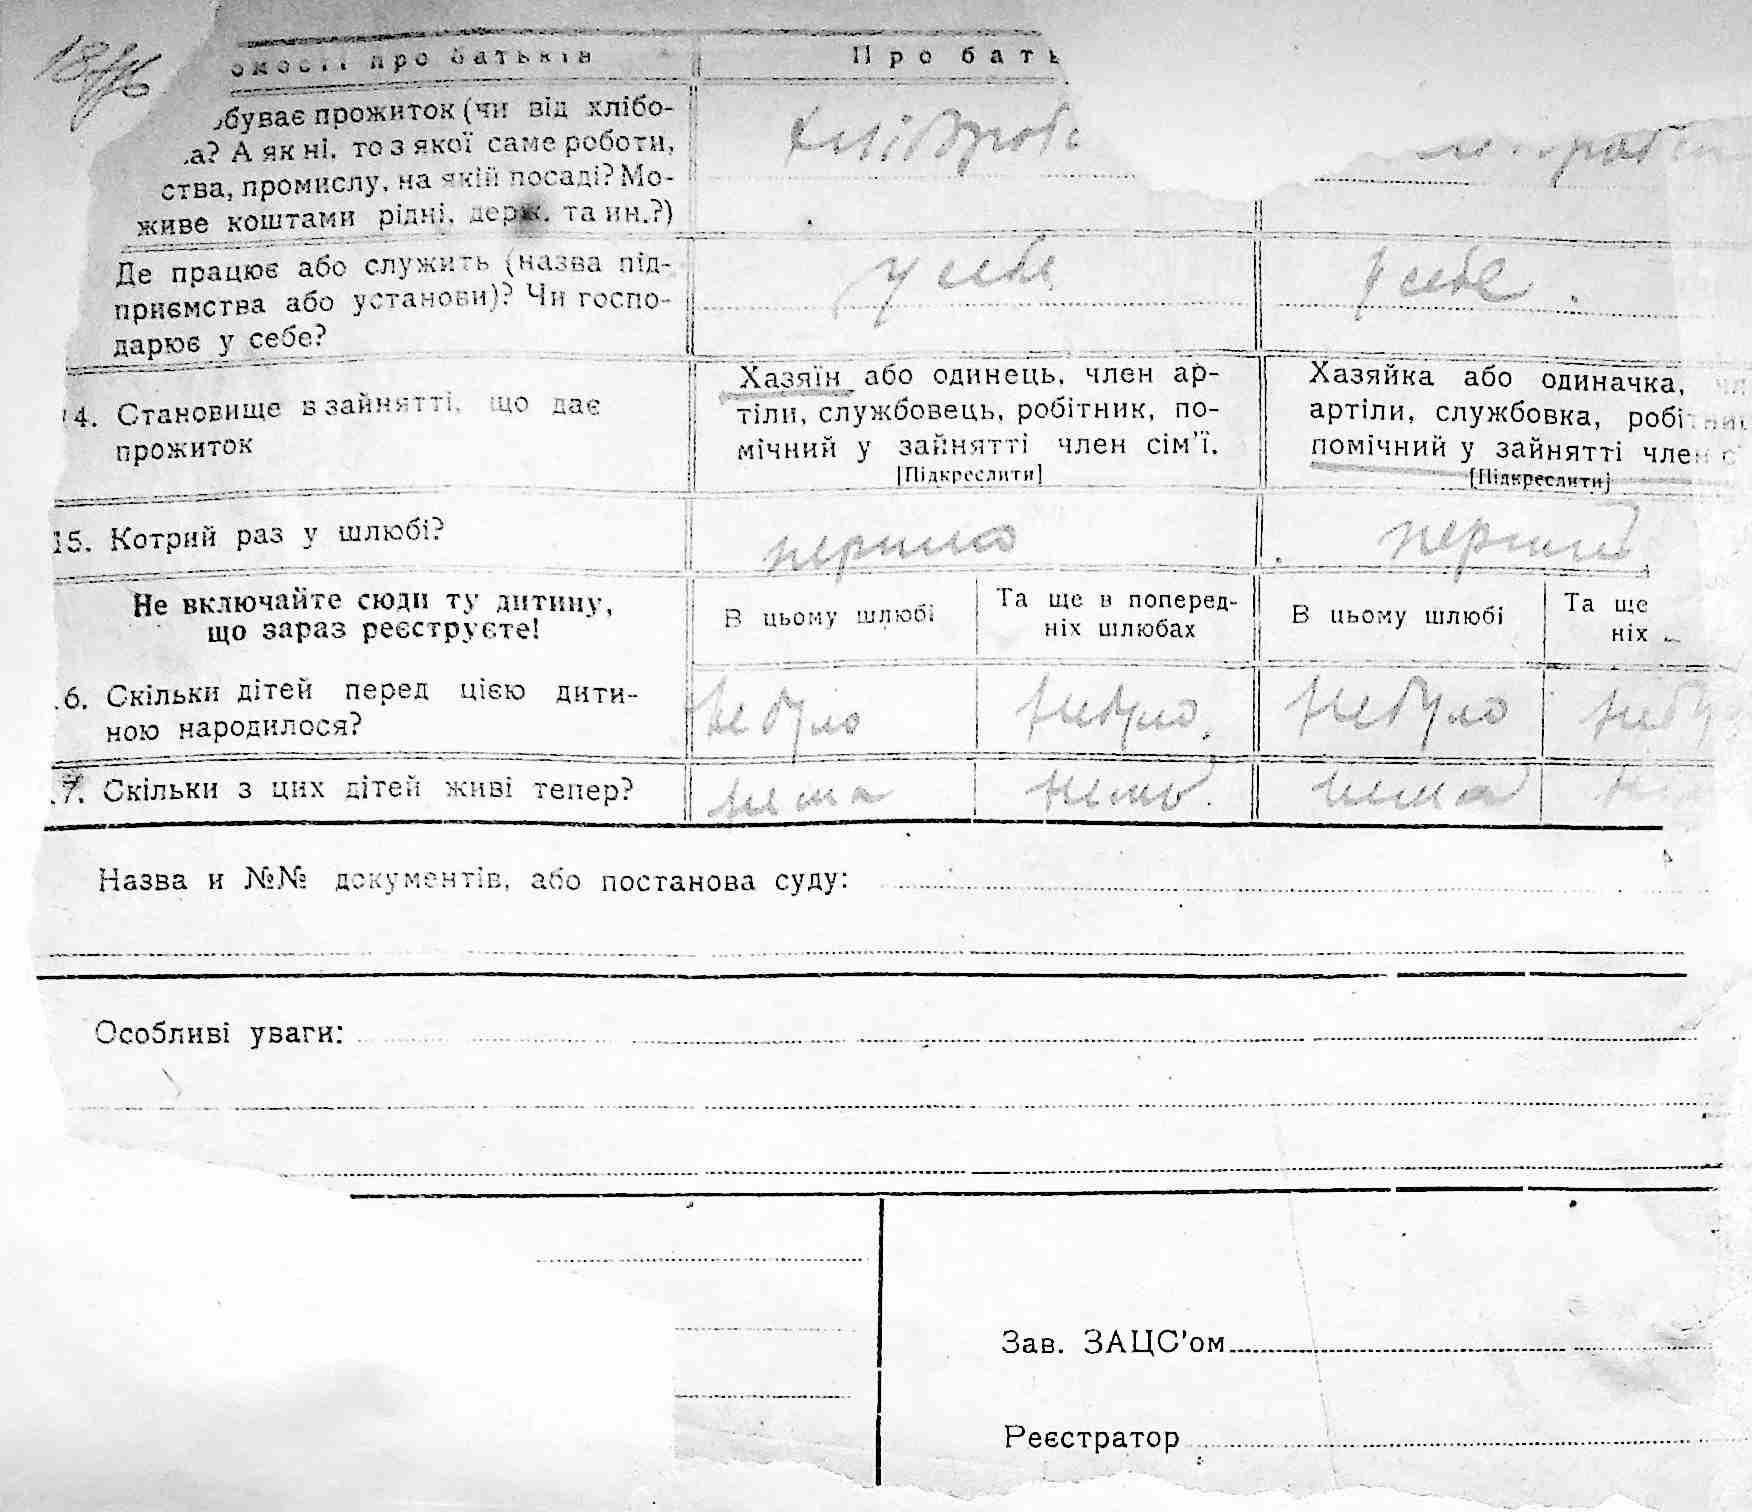 про батьків
Про бать
буває прожиток (чи від хлібо-
а? А як ні, то з якої саме роботи,
ства, промислу, на якій посаді? Мо-
живе коштами рідні, держ. та ин.?)
хліборобс
Де працює або служить (назва під-
приємства або установи)? Чи госпо-
дарює у себе?
у себе
у себе.
4. Становище в зайнятті, що дає
прожиток
Хазяїн або одинець, член ар-
тіли, службовець, робітник, по-
мічний у зайнятті член сім'ї.
[Підкреслити]
Хазяйка або одиначка,
артіли, службовка, робітниц
помічний у зайнятті член с
[Підкреслити]
15. Котрий раз у шлюбі?
перший
Не включайте сюди ту дитину,
що зараз реєструєте!
В цьому шлюбі
Та ще в поперед-
ніх шлюбах
В цьому шлюбі
Та ще
ніх
6. Скільки дітей перед цією дити-
ною народилося?
не було
небуло.
небуло
небу
7. Скільки з цих дітей живі тепер?
нема
нема.
нема
Назва и №№ документів, або постанова суду:
Особливі уваги:
Зав. ЗАЦС'ом
Реєстратор